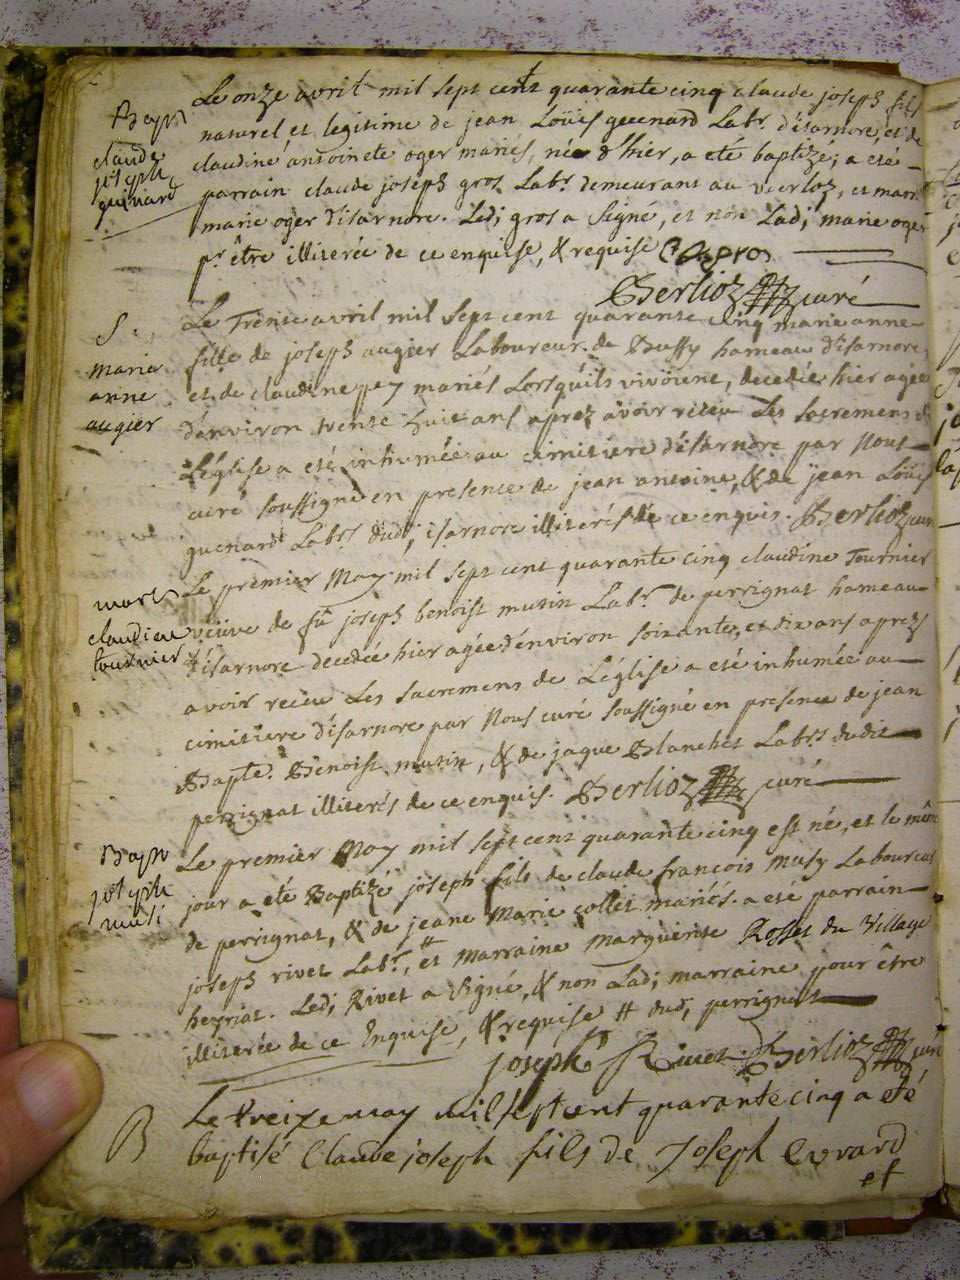 Bapt
claude
joseph
guenard
Le onze avril mil sept cent quarante cinq claude joseph fils
naturel et legitime de jean Loüis guenard Labr. d'isarnore, et de
claudine antoinete oger mariés, née d'hier, a eté baptizé; a eté
parrain claude joseph gros Labr. demeurant au et marr.
marie oger d'isarnore. Ledi, gros a signé, et non Ladi, marie oger
pr. être illiterée de ce enquise, & requise
Berlioz curé
S.
marie
anne
augier
Le Trente avril mil sept cent quarante cinq marie anne
fille de joseph augier Laboureur de Bussy hameau d'isarnore,
et de claudine pey mariés Lorsqu'ils vivoient, decedée hier agée
d'environ trente huit ans aprez avoir receu Les sacremens de
L'église a eté inhumée au cimitiere d'isarnore par Nous
curé soussigné en presence de jean antoine, & de jean Loüis
guenard Labrs. dud, isarnore illiterés de ce enquis. Berlioz curé
mort
claudine
tournier
Le premier May mil sept cent quarante cinq claudine Tournier
veüve de fû joseph benoist mutin Labr. de perrignat hameau
d'isarnore decedée hier agée d'environ soixante, et dix ans aprez
avoir receu Les sacremens de L'église a eté inhumée au
cimitiere d'isarnore par Nous curé soussigné en presence de jean
Bapte. Benoist mutin, & de jaque Blanchet Labrs. dudit
perrignat illiterés de ce enquis. Berlioz curé
Bapt
joseph
musi
Le premier May mil sept cent quarante cinq est né, et le même
jour a eté Baptizé joseph fils de claude francois Musy Laboureur
de perrignat, & de jeane Marie collet mariés. a eté parrain
joseph rivet Labr. # et marraine marguerite Rosset du Village
heyriat. Ledi, Rivet a signé, & non Ladi, marraine pour être
illiterée de ce Enquise, & requise # dud, perrignat
joseph Rivet Berlioz curé
B
Le treize may mil sept cent quarante cinq a eté
baptisé Claude joseph fils de Joseph Evrard
et